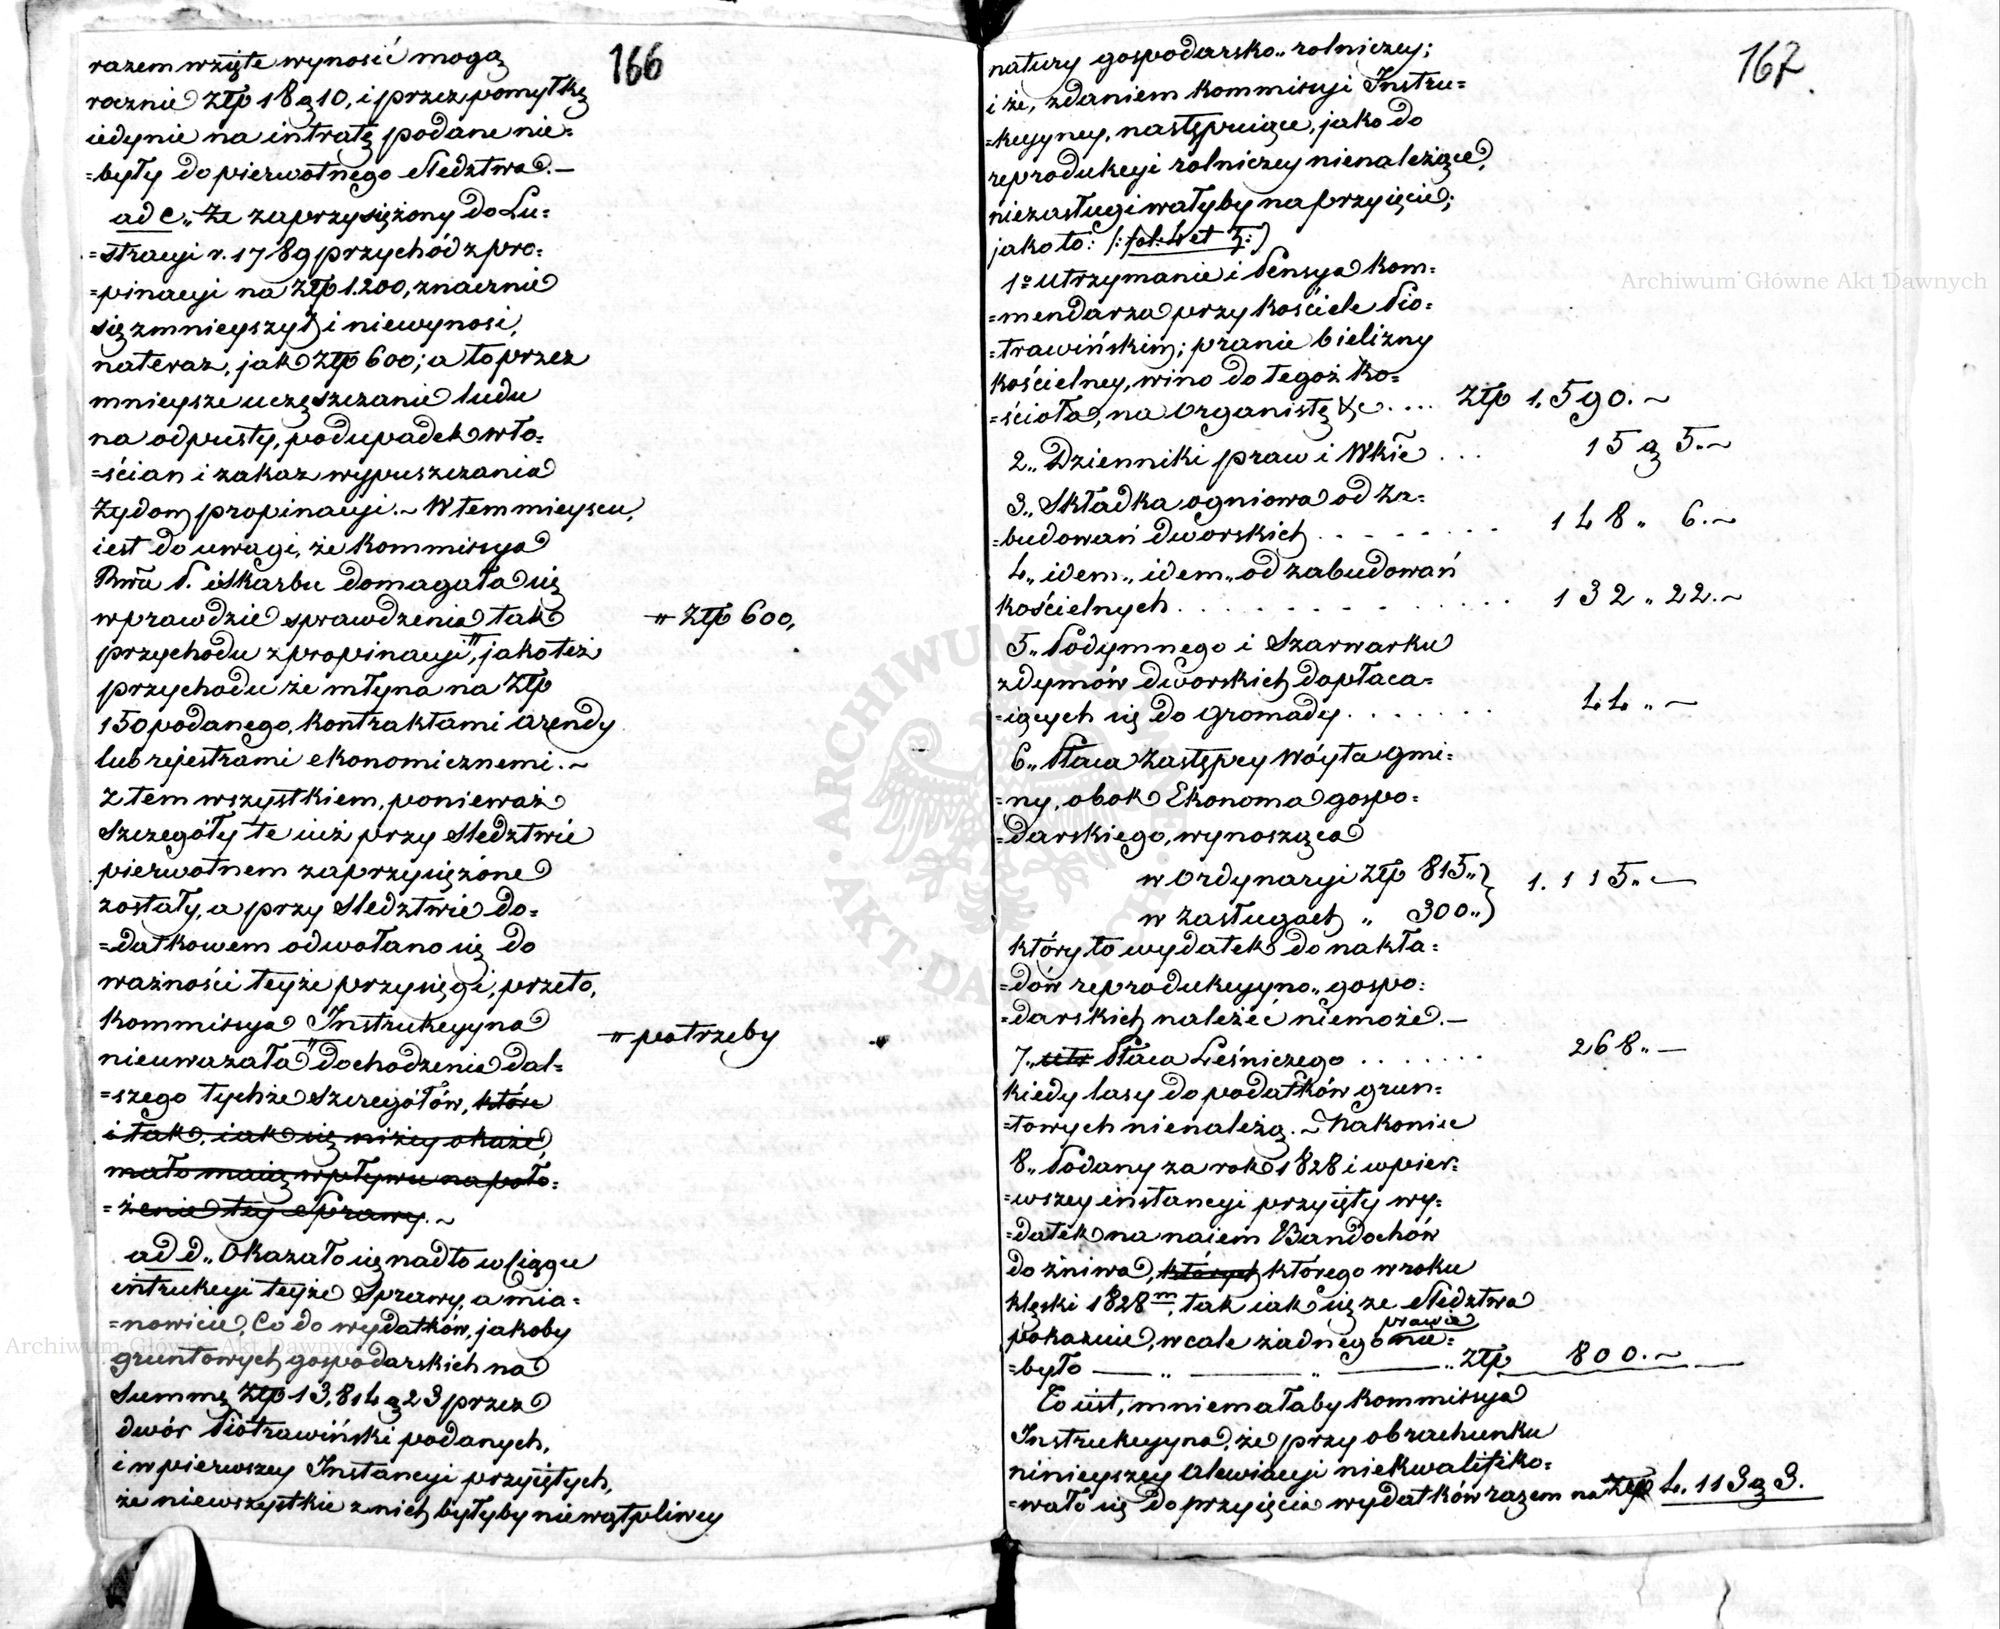 166
razem wzięte wynosić mogą
rocznie ztp 18 g 10, i przez pomyłkę
iedynie na intratę podane nie=
=były do pierwotnego śledztwa.—
ad c„ Że zaprzysiężony do Lu=
=stracyi r. 1789 przychód z pro=
=pinacyi na ztp 1.200, znacznie
się zmnieyszył i niewynosi,
nateraz, jak ztp 600; a to przez
mnieysze uczęszczanie ludu
na odpusty, podupadek wło=
=ścian i zakaz wypuszczania
Żydom propinacyi.~ W tem mieyscu,
iest do uwagi, że Kommissya
Rwa P. i Skarbu domagała się
wprawdzie sprawdzenia tak
przychodu z propinacyi", jako też
" ztp 600,
przychodu ze młyna na ztp
150 podanego, kontraktami arendy
lub rejestrami ekonomicznemi.~
Z tem wszystkiem, ponieważ
szczegóły te iuż przy śledztwie
pierwotnem zaprzysiężone
zostały, a przy śledztwie do=
=datkowem odwołano się do
ważności teyże przysięgi, przeto,
Kommissya Instrukcyyna
nieuważała " dochodzenia dal=
" potrzeby
=szego tychże szczegółów, które
i tak, iak się niżey okaże,
mało maią wpływu na poło=
=żenie tey Sprawy.~
ad d„ Okazało się nadto w ciągu
instrukcyi teyże Sprawy, a mia=
=nowicie, Co do wydatków, jakoby
gruntowych gospodarskich na
Summę ztp 13,814 g 23 przez
dwór Piotrawiński podanych,
i w pierwszey Instancyi przyiętych,
że niewszystkie z nich byłyby niewątpliwey
167.
natury gospodarsko„ rolniczey;
i że, zdaniem Kommissyi Instru=
=kcyyney, następuiące, jako do
reprodukcyi rolniczey nienależące,
niezasługiwałyby na przyięcie;
jako to: /: fol: 4 et 5:)
1º Utrzymanie i Pensya Kom=
=mendarza przy kościele Pio=
=trawińskim; pranie bielizny
kościelney, wino do tegoż ko=
=ścioła, na Organistę &c.... ztp 1.590.~
2„ Dzienniki praw i Wkie ... 15 g 5.~
3„ Składka ogniowa od za=
=budowań dworskich . . . . . . . . 148 „ 6.~
4„ idem„ idem„ od zabudowań
kościelnych . . . . . . . . . . . . . . 132 „ 22.~
5„ Podymnego i Szarwarku
z dymów dworskich dopłaca=
=iących się do gromady . . . . . . . 44 „ ~
6„ Płaca Zastępcy Wóyta gmi=
=ny, obok Ekonoma gospo=
=darskiego, wynosząca
w Ordynaryi ztp 815„ } 1.115„ —
w zasługach „ 300„ }
który to wydatek do nakła=
=dów reprodukcyyno„ gospo=
=darskich należeć niemoże.—
7„ Płaca Leśniczego . . . . . . . 268„ —
kiedy lasy do podatków grun=
=towych nienależą.~ Nakoniec
8„ Podany za rok 1828 i w pier=
=wszey instancyi przyięty wy=
=datek na naiem Bandochów
do żniwa, których którego w roku
klęski 1828m, tak iak się ze śledztwa
prawie
pokazuie, wcale żadnego nie=
=było — „ — „ — „ ztp 800.~
To iest, mniemałaby Kommissya
Instrukcyyna, że przy obrachunku
ninieyszey alewiacyi niekwalifiko=
=wało się do przyięcia wydatków razem na ztp 4.113 g 3.
Archiwum Główne Akt Dawnych
Archiwum Główne Akt Dawnych
ARCHIWUM GŁÓWNE · AKT DAWNYCH ·